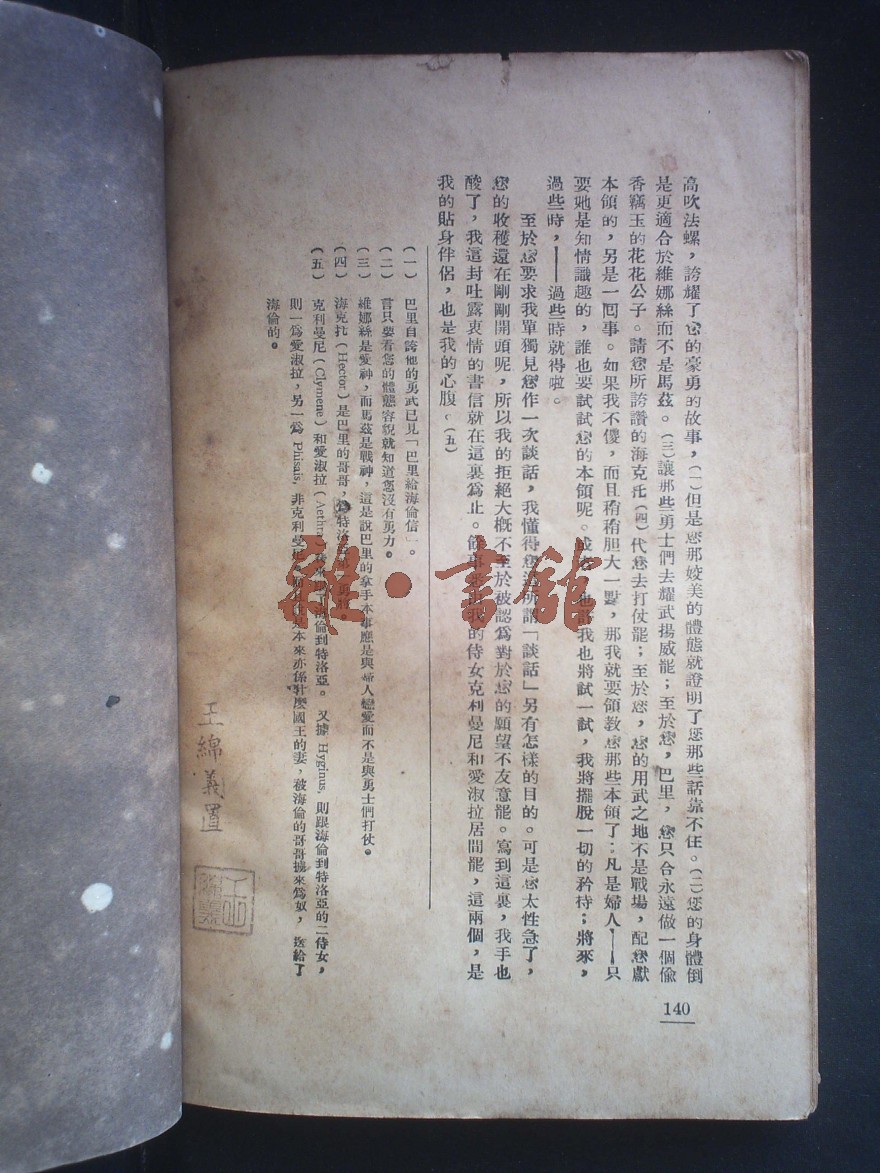 高吹法螺，誇耀了您的豪勇的故事，(一)但是您那姣美的體態就證明了您那些話靠不住。(二)您的身體倒
是更適合於維娜絲而不是馬茲。(三)讓那些勇士們去耀武揚威罷；至於您，巴里，您只合永遠做一個偷
香竊玉的花花公子。請您所誇讚的海克托(四)代您去打仗罷；至於您，您的用武之地不是戰場，配您獻
本領的，另是一囘事。如果我不儍，而且稍稍胆大一點，那我就要領教您那些本領了：凡是婦人——只
要她是知情識趣的，誰也要試試您的本領呢。或者，也許我也將試一試，我將擺脫一切的矜持；將來，
過些時，——過些時就得啦。
至於您要求我單獨見您作一次談話，我懂得您這所謂「談話」另有怎樣的目的。可是您太性急了，
您的收穫還在剛剛開頭呢，所以我的拒絕大概不至於被認爲對於您的願望不友意罷。寫到這裏，我手也
酸了，我這封吐露衷情的書信就在這裏爲止。餘事我的侍女克利曼尼和愛淑拉居間罷，這兩個，是
我的貼身伴侶，也是我的心腹。(五)
(一) 巴里自誇他的勇武已見「巴里給海倫信」。
(二) 言只要看您的體態容貌就知道您沒有勇力。
(三) 維娜絲是愛神，而馬茲是戰神，這是說巴里的拿手本事應是與婦人戀愛而不是與勇士們打仗。
(四) 海克托(Hector)是巴里的哥哥，爲特洛亞
(五) 克利曼尼(Clymene)和愛淑拉(Aethra)海倫到特洛亞。又據 Hyginus, 則跟海倫到特洛亞的二侍女，
則一爲愛淑拉，另一爲 Phisais, 非克利曼尼是本來亦係什麽國王的妻，被海倫的哥哥擄來爲奴，送給了
海倫的。
140
王綿義置
雜·書館